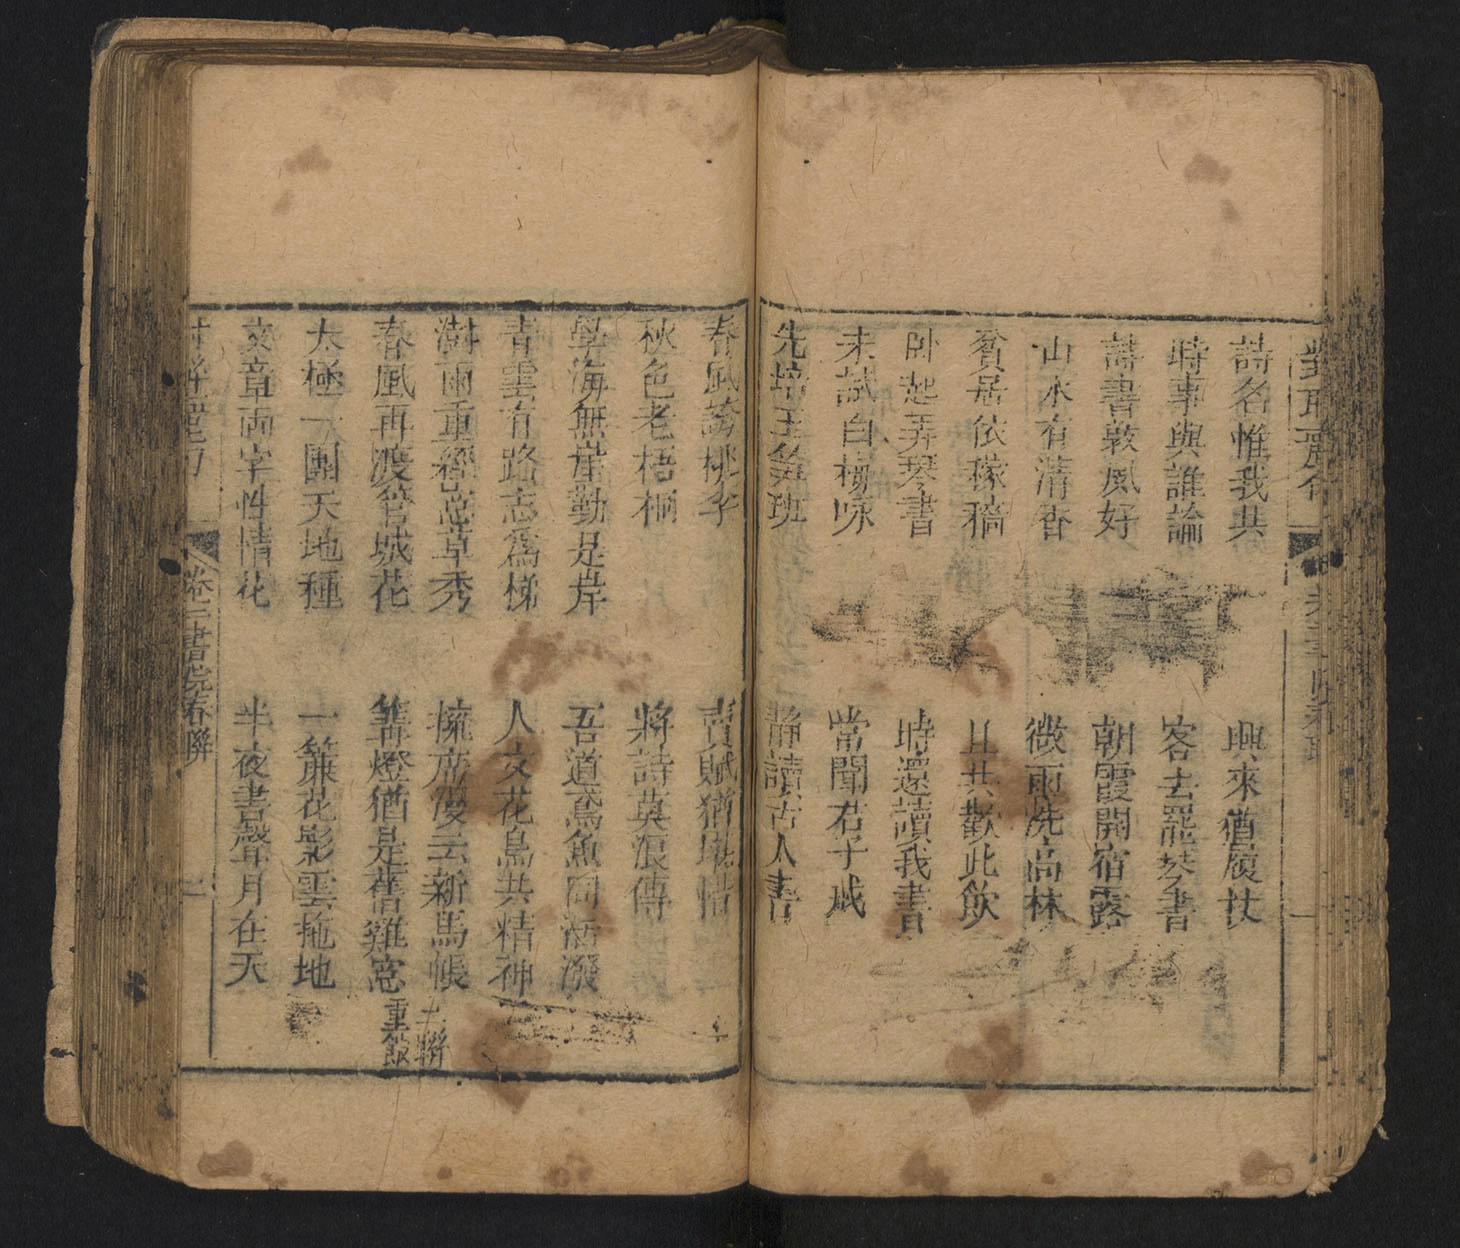 詩名惟我共　興來猶履杖
時事與誰論　客去罷琴書
詩書敦夙好　朝霞開宿霧
山水有清音　微雨洗高林
貧居依稼穡　且共歡此飲
臥起弄琴書　時還讀我書
未試白楊咏　常聞君子戒
先培玉筍班　靜讀古人書
春風誇桃李　賣賦猶堪惜
秋色老梧桐　將詩莫浪傳
學海無崖勤是岸　吾道鳶魚同活潑
青雲有路志爲梯　人文花鳥共精神
澍雨重經窓草秀　擁席漫云新馬帳　二聯
春風再渡管城花　篝燈猶是舊雞窓　重館
太極一團天地種　一簾花影雲拖地
文章兩字性情花　半夜書聲月在天
卷二書院春聯
二